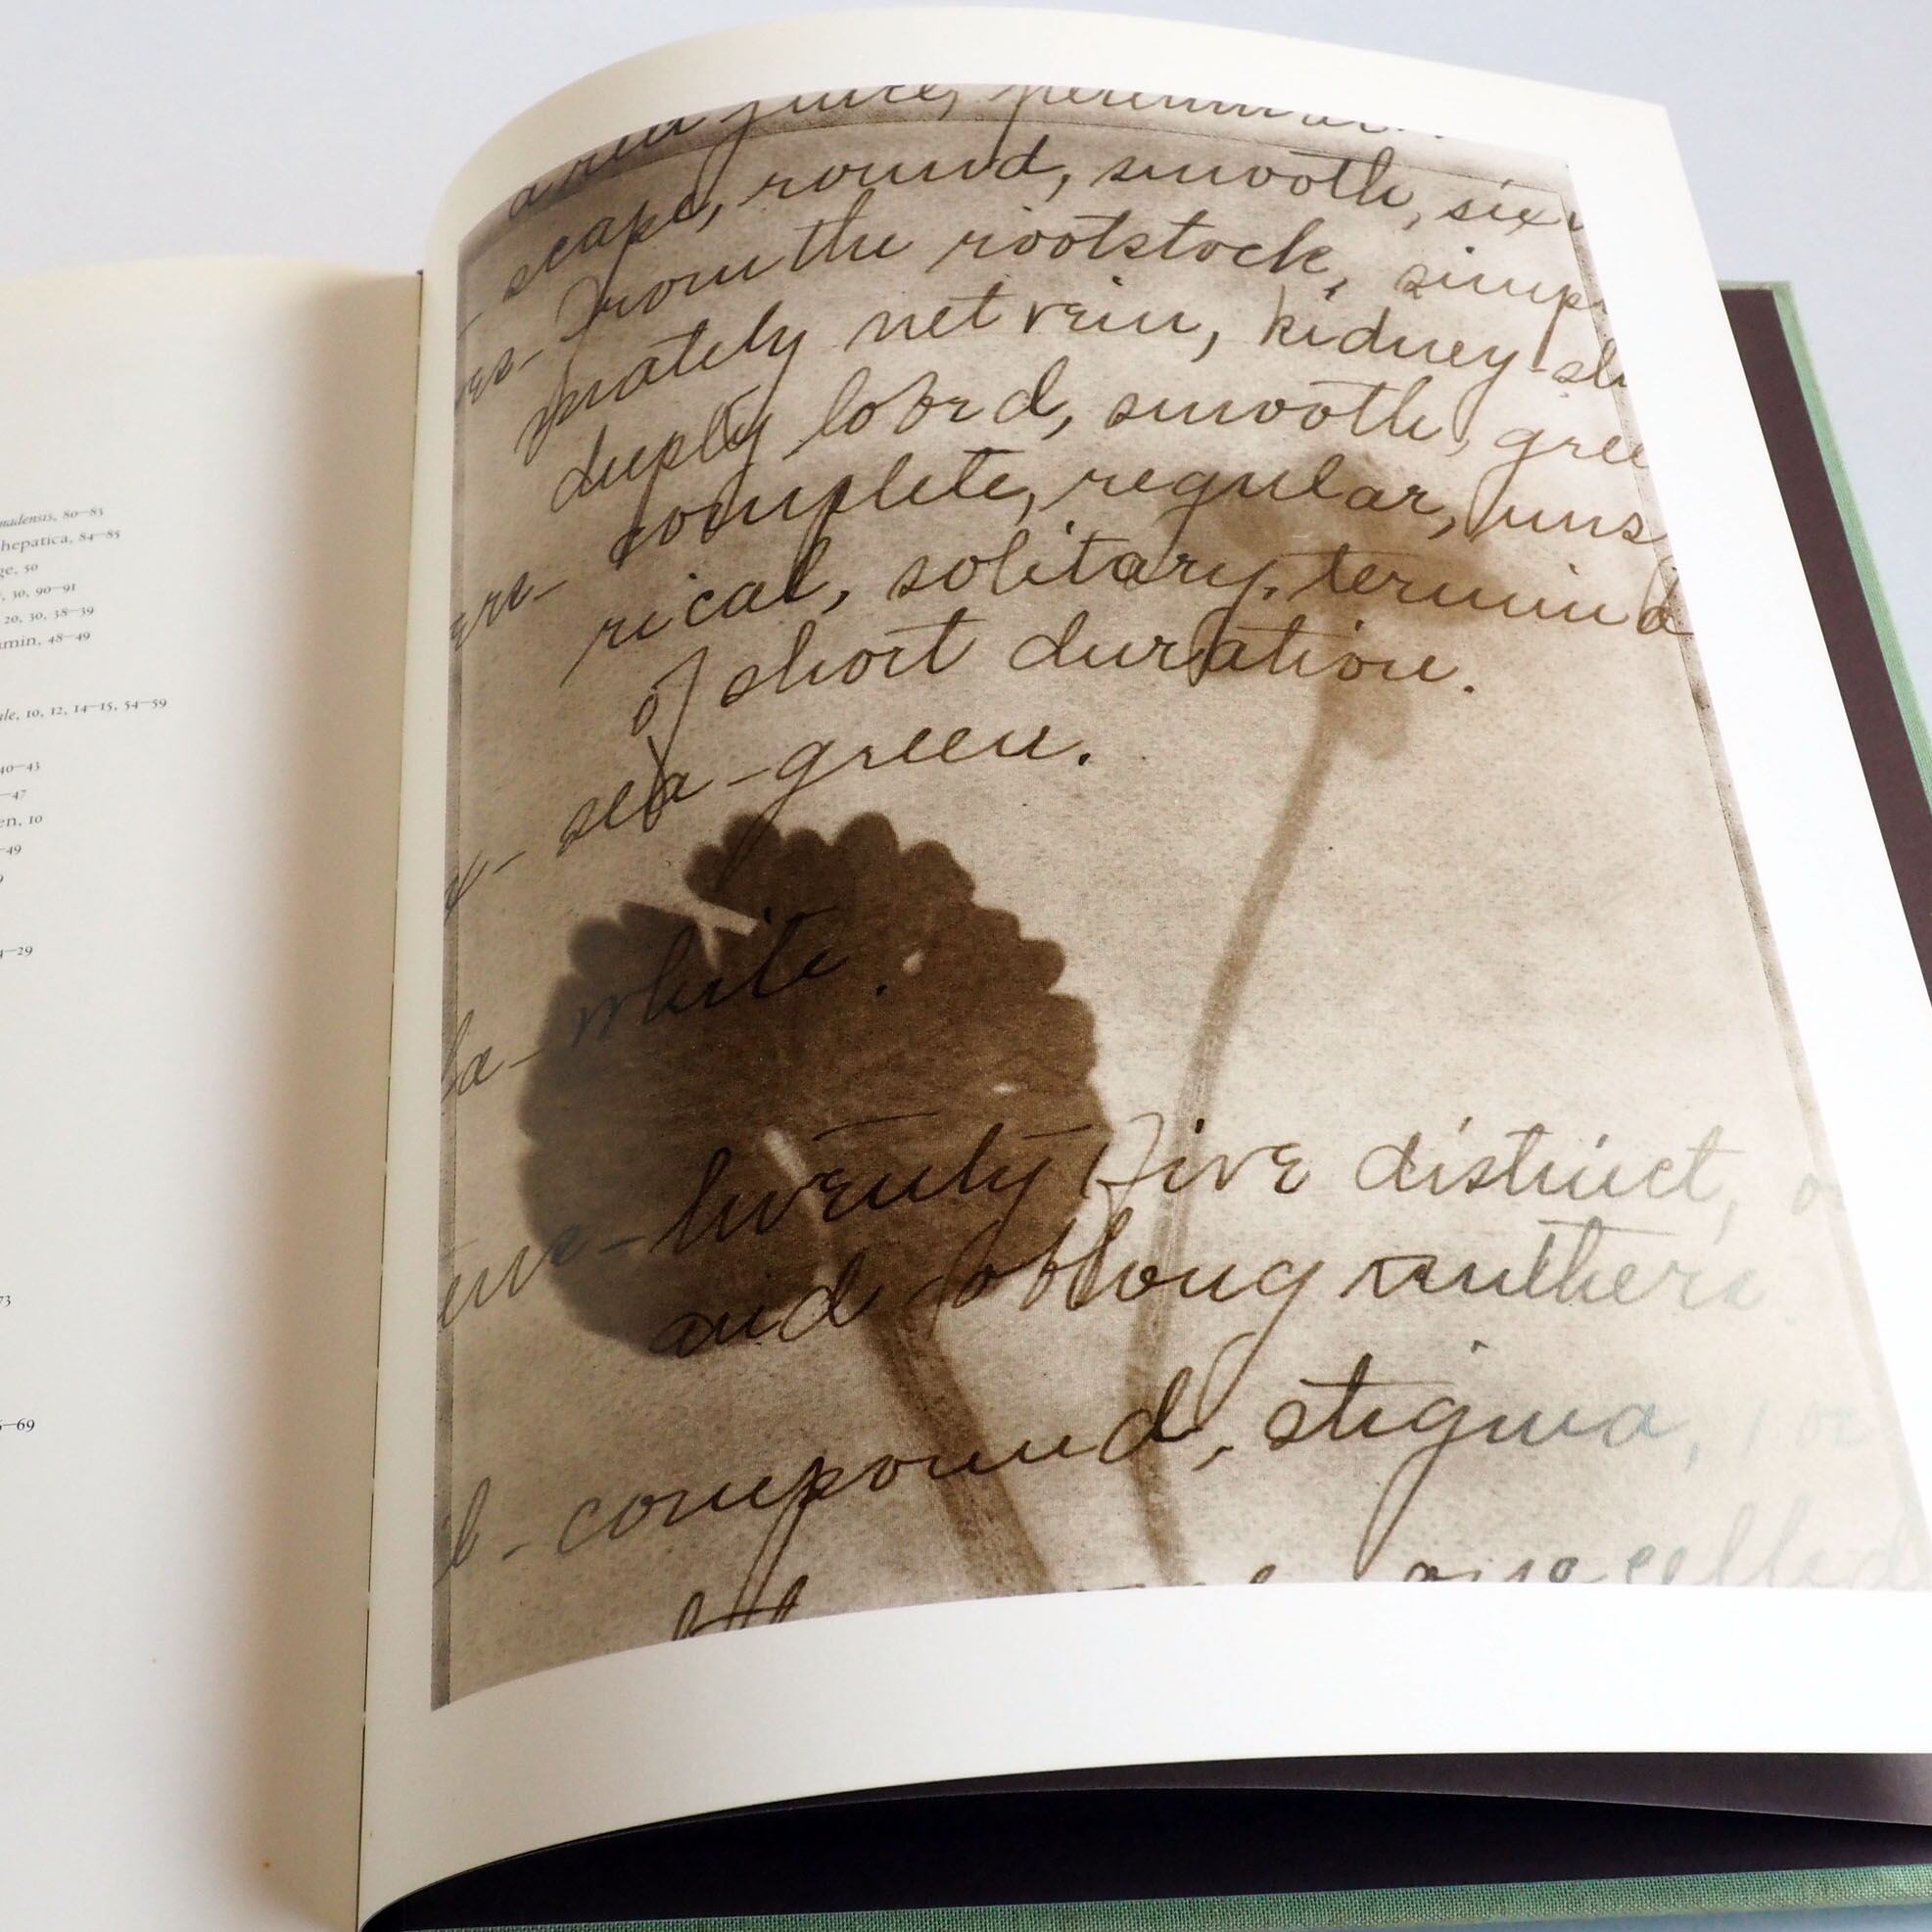 nadensis, 80–83
hepatica, 84–85
ge, 50
, 30, 90–91
20, 30, 38–39
min, 48–49
le, 10, 12, 14–15, 54–59
40–43
–47
en, 10
–49
–29
73
–69
acrid juice, perennial.
scape, round, smooth, six
from the rootstock, simp
nately net vein, kidney sh
deeply lobed, smooth, gree
complete, regular, uns
rical, solitary, termina
of short duration.
x- sea-green.
la- white.
twenty five distinct, o
and oblong anthers
l- compound, stigma, 1 or
one celled